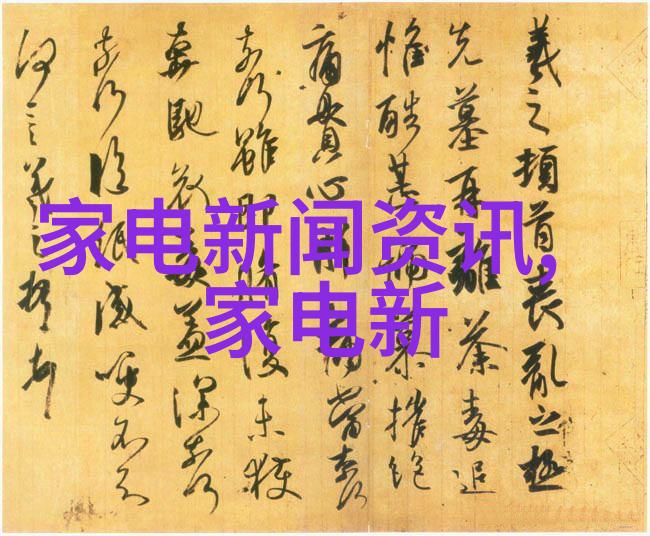 羲之頓首喪亂之極
先墓再離荼毒追
惟酷甚號慕摧絕
痛貫心肝痛當奈何
奈何雖即脩復未獲
奔馳哀毒益深奈何
奈何臨紙感哽不知
何言羲之頓首
家电新闻资讯,
家电新